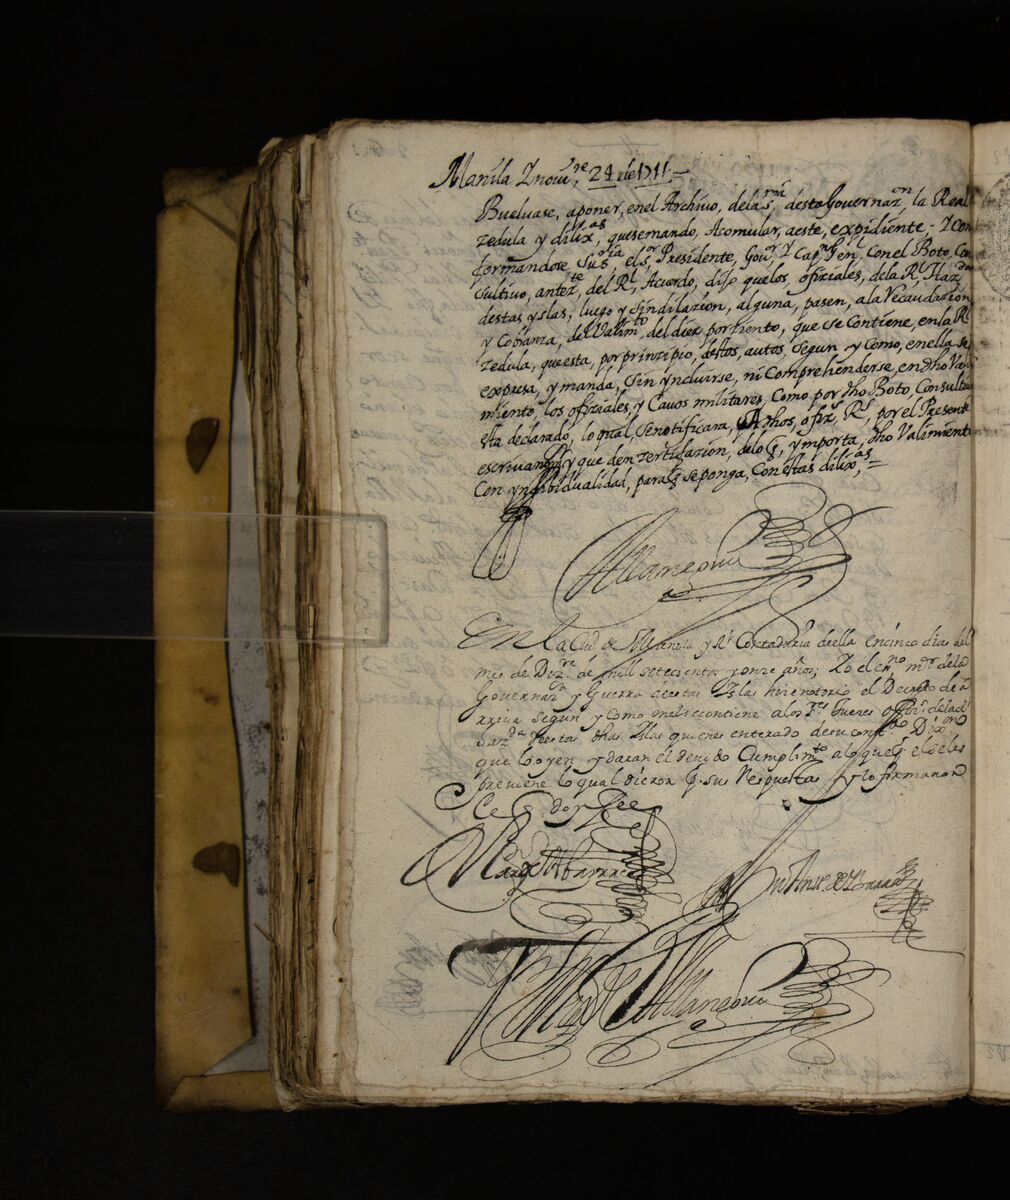 Manila Y nouie 24 de 1711
Bueluase, aponer, enel Archiuo, dela sria, desta Gouernazn, la Real
zedula y dilixas, quesemando, Acomular, aeste, expidiente, Y con
formandose, Su sria, el sr Presidente, Gour Y Capn Genl, Conel Boto, Con
sultiuo, antezte, del Rl, Acuerdo, dijo quelos, ofiziales, dela Rl, Hazda
destas yslas, luego y sindilazion, alguna, pasen, ala Recaudazion
y Cobranza, del Valimto, del diez porziento, que se Contiene, enla Rl
zedula, questa, por prinzipio, destos, autos, Segun y Como, enella se
expresa, y manda, sin yncluirse, ni Comprehenderse, en dho Vali
miento, los ofiziales, y Cauos militares, Como por dho Boto, Consultiuo
esta declarado, lo qual, Senotificara, A dhos, ofizs Rs, por el Presente
escriuano y que den zertificazion, delo q, ymporta, dho Valimiento
Con yndibidualidad, para q se ponga, Con estas dilixas,
En la Ciud de Manila y Rl Contaduria deella en cinco dias del
mes de Dize de mill setecientos y onze años; Yo el esno mor dela
Gouernazn y Guerra de estas Yslas hize notorio el Decreto de a
rriua segun y como en el secontiene alos
Hazda de estas dhas Yslas quienes enterado
que lo oyen y daran el deuido Cumplimto alo que por el seles
preuiene lo qual dieron por su Respuesta y lo firmaron
de q doy fee